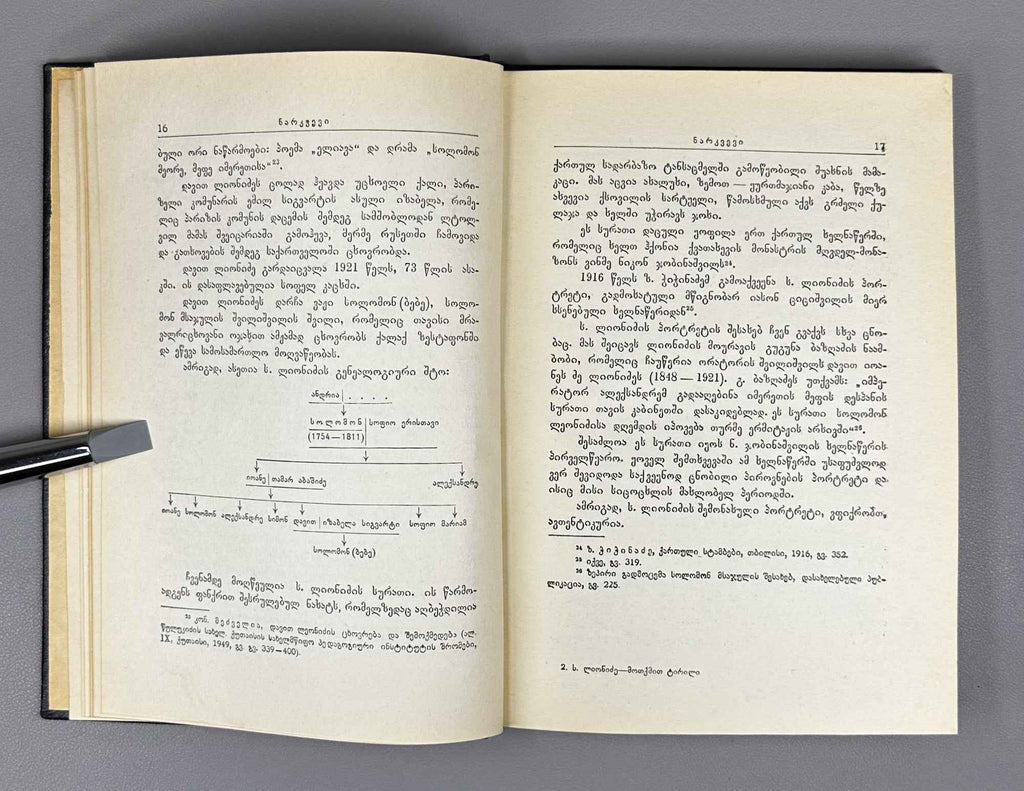 16
ნარკვევი
ბული ორი ნაწარმოები: პოემა „ელიავა“ და დრამა „სოლომონ
მეორე, მეფე იმერეთისა“²³.
დავით ლიონიძეს ცოლად ჰყავდა უცხოელი ქალი, პარი-
ზელი კომუნარის ემილ სიგვარტის ასული იზაბელა, რომე-
ლიც პარიზის კომუნის დაცემის შემდეგ სამშობლოდან ლტოლ-
ვილ მამას შვეიცარიაში გამოჰყვა, მერმე რუსეთში ჩამოვიდა
და გათხოვების შემდეგ საქართველოში ცხოვრობდა.
დავით ლიონიძე გარდაიცვალა 1921 წელს, 73 წლის ასა-
კში. ის დასაფლავებულია სოფელ კაცხში.
დავით ლიონიძეს დარჩა ვაჟი სოლომონ (ბებე), სოლო-
მონ მსაჯულის შვილიშვილის შვილი, რომელიც თავისი მრა-
ვალრიცხოვანი ოჯახით ამჟამად ცხოვრობს ქალაქ ზესტაფონში
და ეწევა სამოსამართლო მოღვაწეობას.
ამრიგად, ასეთია ს. ლიონიძის გენეალოგიური შტო:
ანდრია . . . .
სოლომონ სოფიო ერისთავი
(1754—1811)
იოანე თამარ აბაშიძე ალექსანდრე
იოანე სოლომონ ალექსანდრე სიმონ დავით იზაბელა სიგვარტი სოფიო მარიამ
სოლომონ (ბებე)
ჩვენამდე მოღწეულია ს. ლიონიძის სურათი. ის წარმო-
ადგენს ფანქრით შესრულებულ ნახატს, რომელზედაც აღბეჭდილია
²³ კონ. მეძველია, დავით ლეონიძის ცხოვრება და შემოქმედება (ალ.
წულუკიძის სახელ. ქუთაისის სახელმწიფო პედაგოგიური ინსტიტუტის შრომები,
IX, ქუთაისი, 1949, გვ. გვ. 339—400).
ნარკვევი
17
ქართულ სადარბაზო ტანსაცმელში გამოწყობილი შუახნის მამა-
კაცი. მას აცვია ახალუხი, ზემოთ — ყურთმაჯიანი კაბა, წელზე
ახვევია ქსოვილის სარტყელი, წამოსხმული აქვს გრძელი ქუ-
ლაჯა და ხელში უჭირავს ჯოხი.
ეს სურათი დაცული ყოფილა ერთ ქართულ ხელნაწერში,
რომელიც ხელთ ჰქონია ქვათახევის მონასტრის მღვდელ-მონა-
ზონს ვინმე ნიკონ ჯობინაშვილს²⁴.
1916 წელს ზ. ჭიჭინაძემ გამოაქვეყნა ს. ლიონიძის პორ-
ტრეტი, გადმოხატული მწიგნობარ იასონ ციციშვილის მიერ
ხსენებული ხელნაწერიდან²⁵.
ს. ლიონიძის პორტრეტის შესახებ ჩვენ გვაქვს სხვა ცნო-
ბაც. მას შეიცავს ლიონიძის მოურავის გუგუნა ბაზღაძის ნაამ-
ბობი, რომელიც ჩაუწერია ორატორის შვილიშვილს დავით იოა-
ნეს ძე ლიონიძეს (1848 — 1921). გ. ბაზღაძეს უთქვამს: „იმპე-
რატორ ალექსანდრემ გადააღებინა იმერეთის მეფის დესპანის
სურათი თავის კაბინეტში დასაკიდებლად. ეს სურათი სოლომონ
ლეონიძისა დღემდის იპოვება თურმე ერმიტაჟის არხივში“²⁶.
შესაძლოა ეს სურათი იყოს ნ. ჯობინაშვილის ხელნაწერის
პირველწყარო. ყოველ შემთხვევაში ამ ხელნაწერში უსაფუძვლოდ
ვერ შევიდოდა საქვეყნოდ ცნობილი პიროვნების პორტრეტი და
ისიც მისი სიცოცხლის მახლობელ პერიოდში.
ამრიგად, ს. ლიონიძის შემონახული პორტრეტი, ვფიქრობთ,
ავთენტიკურია.
²⁴ ზ. ჭიჭინაძე, ქართული სტამბები, თბილისი, 1916, გვ. 352.
²⁵ იქვე, გვ. 319.
²⁶ ზეპირი გადმოცემა სოლომონ მსაჯულის შესახებ, დასახელებული პუბ-
ლიკაცია, გვ. 225.
2. ს. ლიონიძე—მოთქმით ტირილი